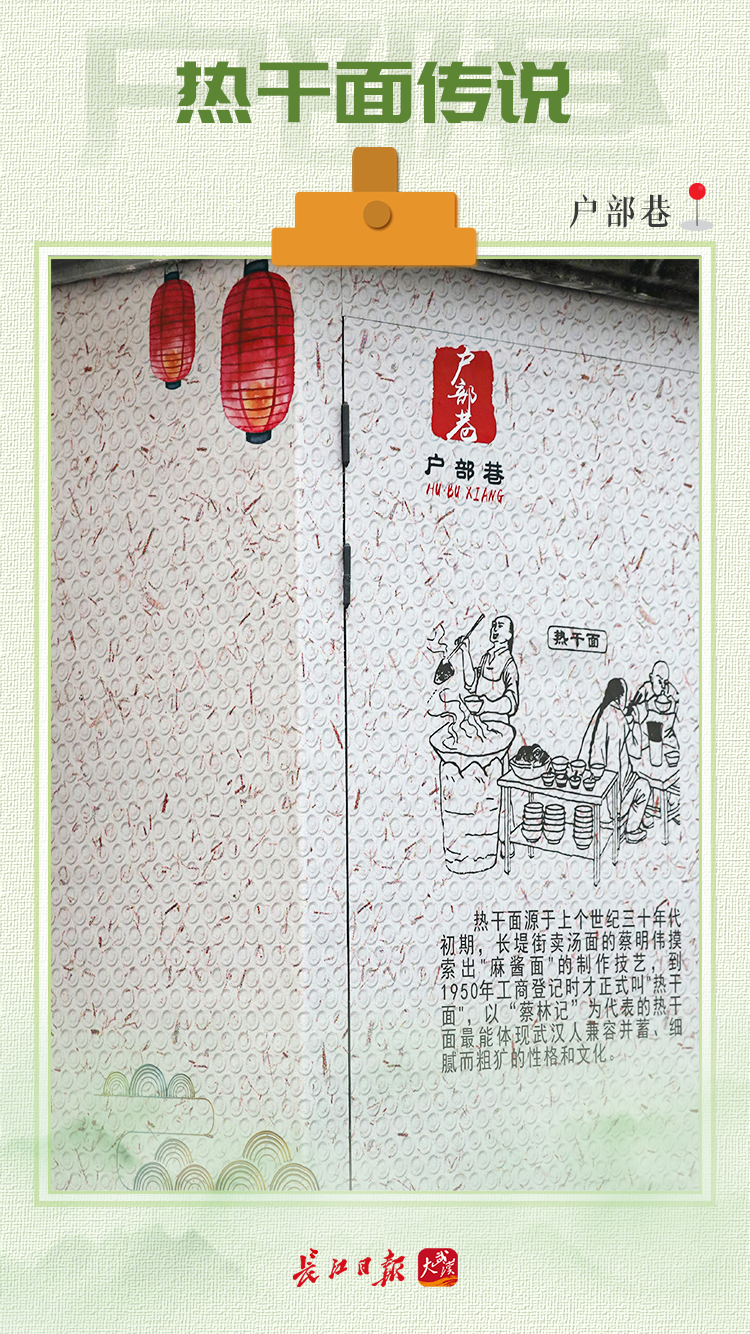 热干面传说
户部巷
户部巷
户部巷
HU BU XIANG
热干面
热干面源于上个世纪三十年代
初期，长堤街卖汤面的蔡明伟摸
索出"麻酱面"的制作技艺，到
1950年工商登记时才正式叫"热干
面"，以“蔡林记”为代表的热干
面最能体现武汉人兼容并蓄、细
腻而粗犷的性格和文化。
长江日报
大武汉